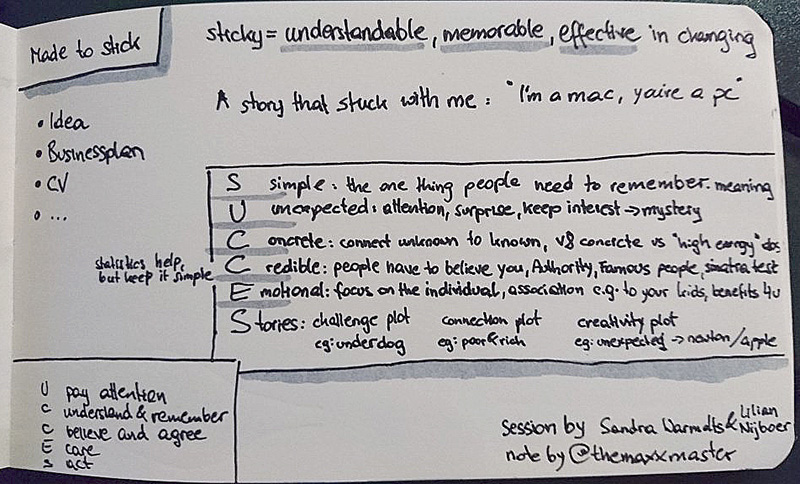 Made to stick
sticky = understandable, memorable, effective in changing
A story that stuck with me: "I'm a mac, you're a pc"
• Idea
• Businessplan
• CV
• ...
S simple: the one thing people need to remember. meaning
U unexpected: attention, surprise, keep interest → mystery
C oncrete: connect unknown to known, V8 concrete vs "high energy"
statistics help,
but keep it simple
C redible: people have to believe you, Authority, Famous people, sinatra test
E motional: focus on the individual, association e.g. to your kids, benefits 4u
S tories: challenge plot connection plot creativity plot
eg: underdog eg: poor & rich eg: unexpected → newton/apple
U pay attention
C understand & remember
C believe and agree
E care
S act
session by Sandra Warmolts & Lilian Nijboer
note by @themaxxmaster